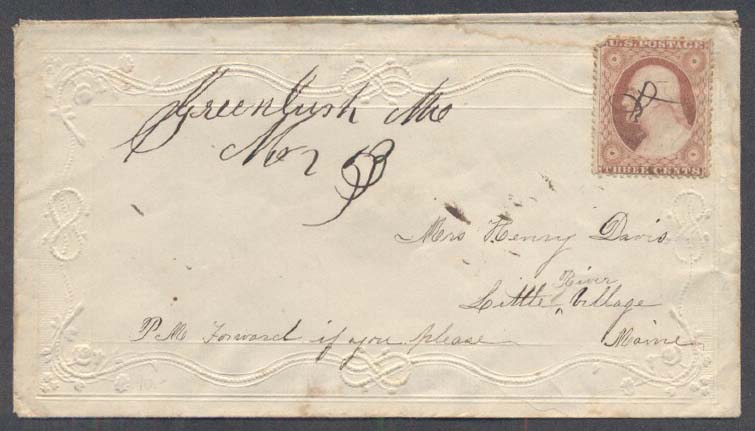 U.S. POSTAGE
THREE CENTS
Greenbush Me
Mrs Henry Davis
River
Little ‸ Village
P.M. Forward if you please Maine